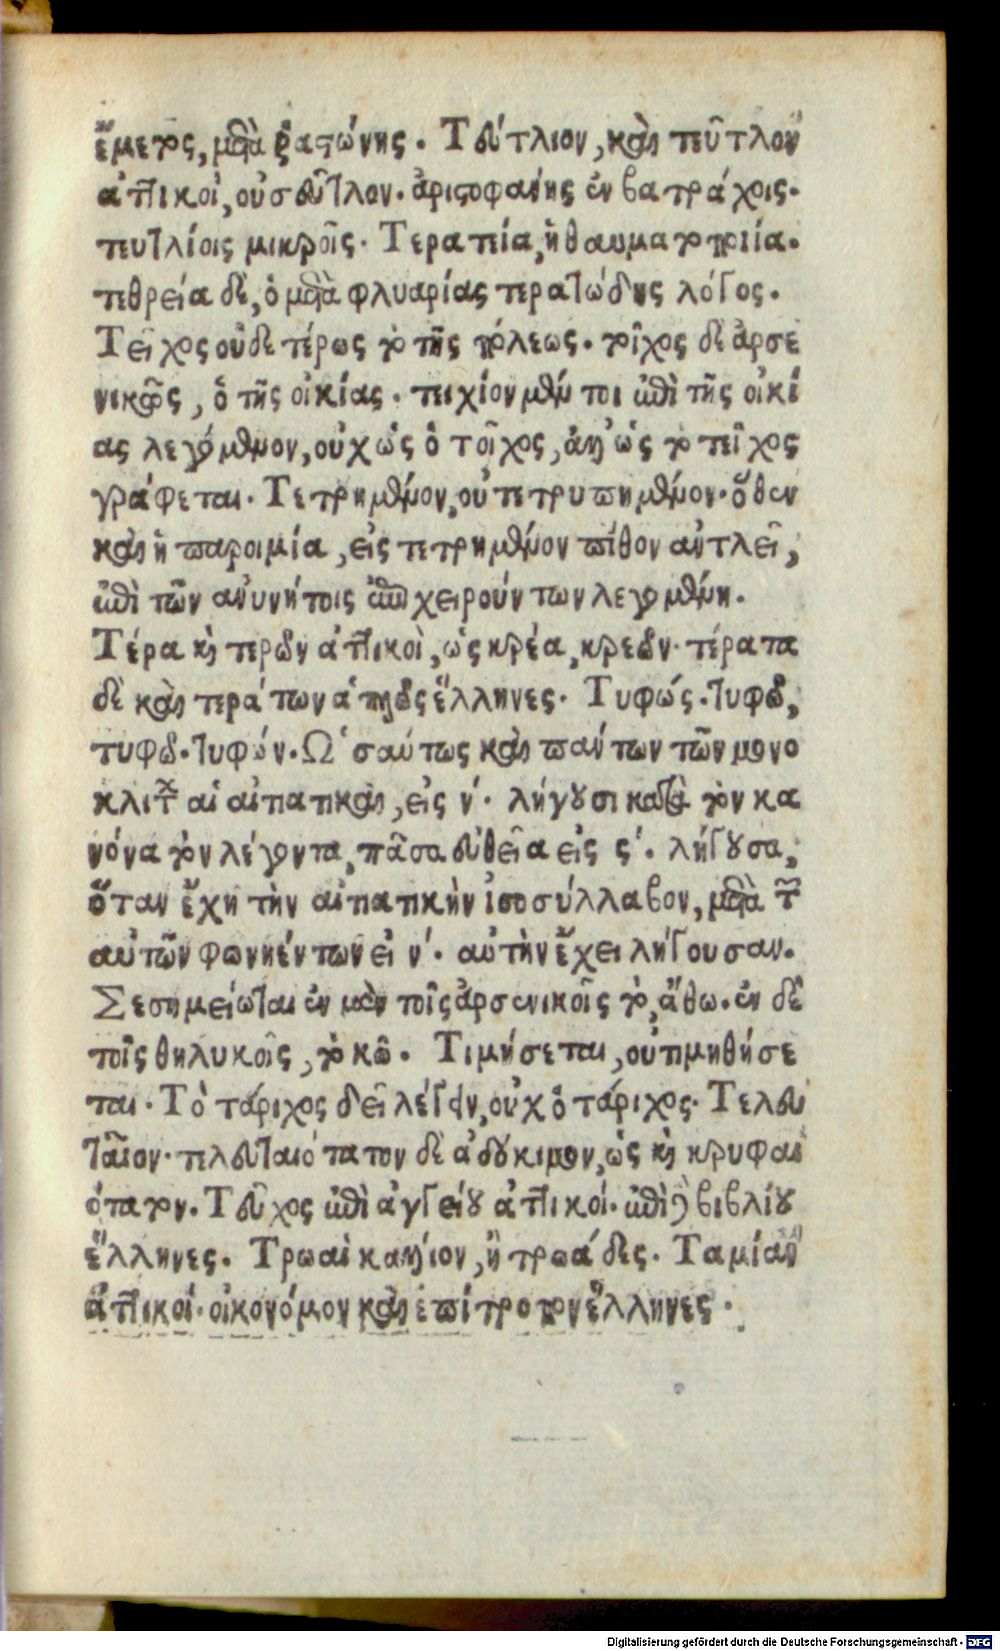 ἔμετος, μετὰ ῥαστώνης. Τευτλίον, καὶ τεῦτλον
ἀττικοί, οὐ σεῦτλον. ἀριστοφάνης ἐν βατράχοις.
τευτλίοις μικροῖς. Τερατεία, ἡ θαυματοποιία.
τερθρεία δὲ, ὁ μετὰ φλυαρίας τερατώδης λόγος.
Τεῖχος οὐδετέρως τὸ τῆς πόλεως. τοῖχος δὲ ἀρσε
νικῶς, ὁ τῆς οἰκίας. τειχίον μέν τοι ἐπὶ τῆς οἰκί
ας λεγόμενον, οὐχ ὡς ὁ τοῖχος, ἀλλ' ὡς τὸ τεῖχος
γράφεται. Τετρημένον, οὐ τετρυπημένον. ὅθεν
καὶ ἡ παροιμία, εἰς τετρημένον πίθον ἀντλεῖ,
ἐπὶ τῶν ἀνυνήτοις ἐπιχειρούντων λεγομένη.
Τέρα καὶ τερῶν ἀττικοὶ, ὡς κρέα, κρεῶν. τέρατα
δὲ καὶ τεράτων ἁπλῶς ἕλληνες. Τυφώς. τυφῶ,
τυφῶ. τυφών. Ὡσαύτως καὶ πάντων τῶν μονο
κλίτων αἱ αἰτιατικαὶ, εἰς ν'. λήγουσι κατὰ τὸν κα
νόνα τὸν λέγοντα, πᾶσα εὐθεῖα εἰς ς'. λήγουσα,
ὅταν ἔχῃ τὴν αἰτιατικὴν ἰσοσύλλαβον, μετὰ τῶν
αὐτῶν φωνηέντων εἰ ν'. αὐτὴν ἔχει λήγουσαν.
Σεσημείωται ἐν μὲν τοῖς ἀρσενικοῖς τὸ, ἄθω. ἐν δὲ
τοῖς θηλυκοῖς, τὸ κῶ. Τιμήσεται, οὐ τιμηθήσε
ται. Τὸ τάριχος δεῖ λέγειν, οὐχ ὁ τάριχος. Τελευ
ταῖον. τελευταιότατον δὲ ἀδόκιμον, ὡς καὶ κρυφαι
ότατον. Τεῦχος ἐπὶ ἀγγείου ἀττικοί. ἐπὶ βιβλίου
ἕλληνες. Τρωαὶ κάλλιον, ἢ τρωάδες. Ταμίαν
ἀττικοί. οἰκονόμον καὶ ἐπίτροπον ἕλληνες.
Digitalisierung gefördert durch die Deutsche Forschungsgemeinschaft - DFG